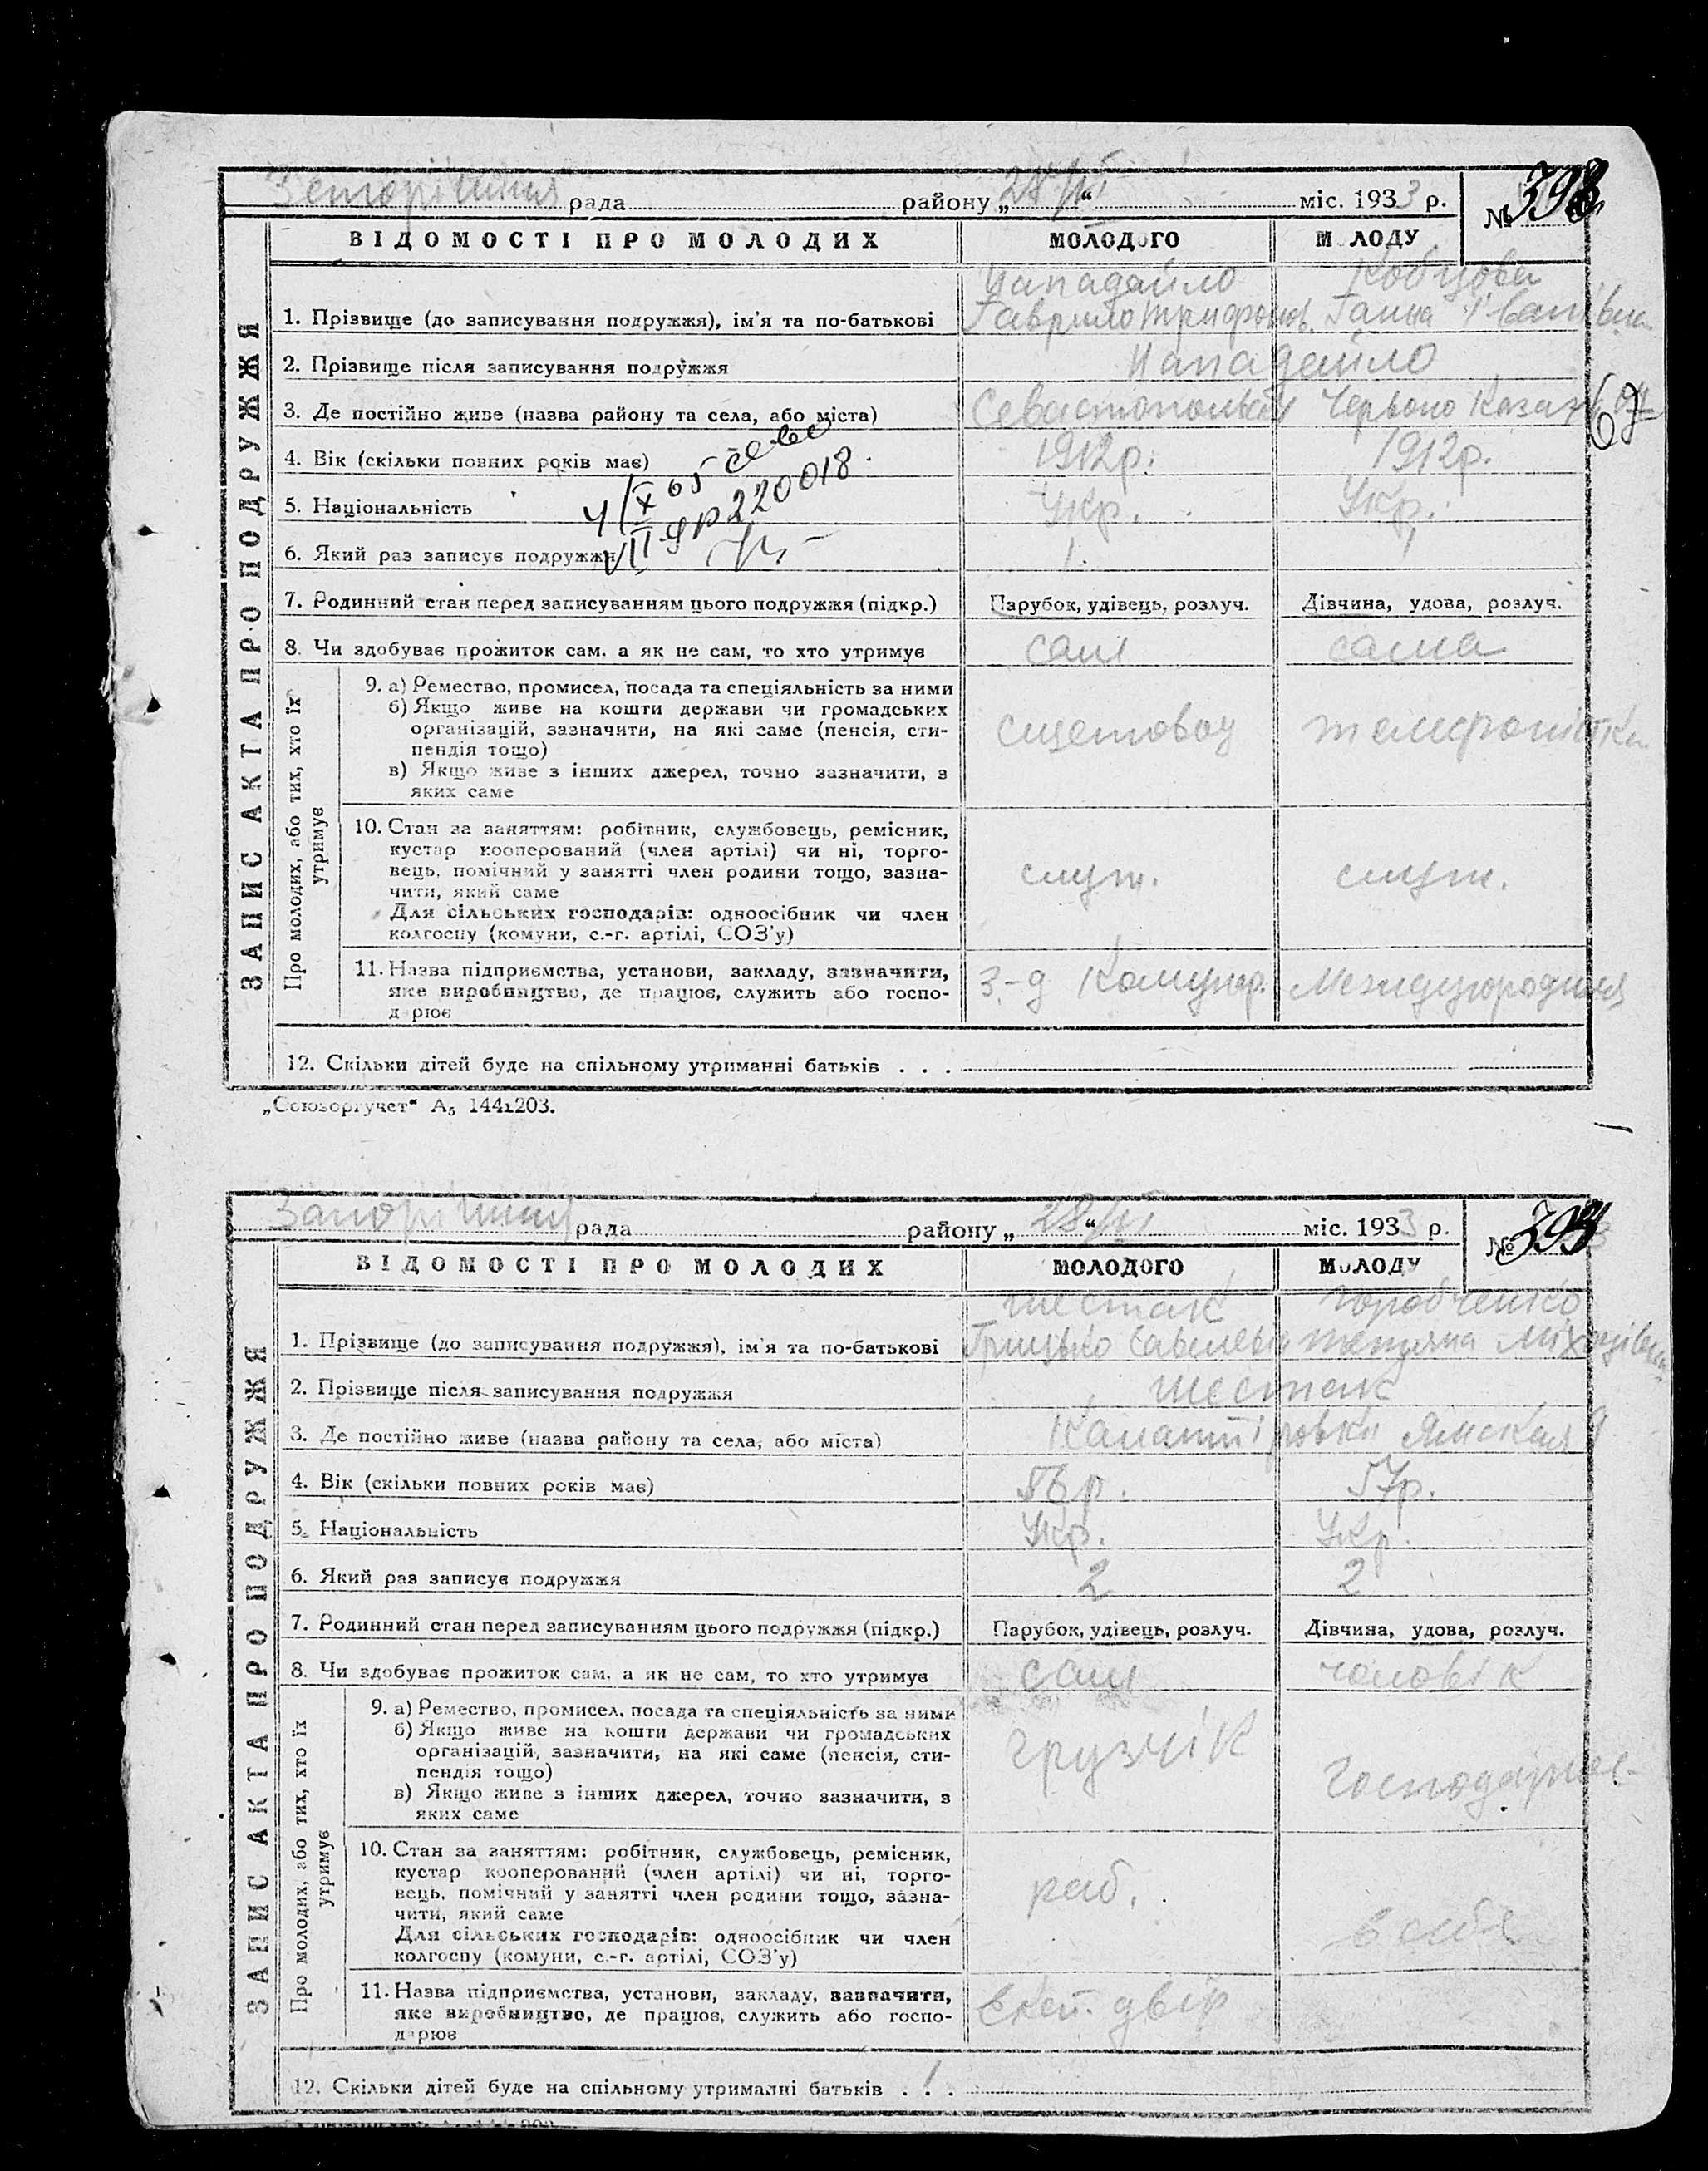 рада району „28/III“ міс. 1933 р. № 398
ВІДОМОСТІ ПРО МОЛОДИХ МОЛОДОГО МОЛОДУ
ЗАПИС АКТА ПРО ПОДРУЖЖЯ
Нападайло Кобцова
1. Прізвище (до записування подружжя), ім'я та по-батькові Гаврило Трифонов. Ганна Іванівна
2. Прізвище після записування подружжя Нападайло
3. Де постійно живе (назва району та села, або міста) Севастопольськ Червоно Казач
4. Вік (скільки повних років має) 1912р. 1912р.
5. Національність Укр. Укр.
4/X 65
VII ЯР 220018
6. Який раз записує подружжя 1 1
7. Родинний стан перед записуванням цього подружжя (підкр.) Парубок, удівець, розлуч. Дівчина, удова, розлуч.
8. Чи здобуває прожиток сам, а як не сам, то хто утримує сам сама
Про молодих, або тих, хто їх утримує
9. а) Ремество, промисел, посада та спеціяльність за ними
б) Якщо живе на кошти держави чи громадських
організацій, зазначити, на які саме (пенсія, сти-
пендія тощо)
счетовод телефоністка
в) Якщо живе з інших джерел, точно зазначити, з
яких саме
10. Стан за заняттям: робітник, службовець, ремісник,
кустар кооперований (член артілі) чи ні, торго-
вець, помічний у занятті член родини тощо, зазна-
чити, який саме
служ. служ.
Для сільських господарів: одноосібник чи член
колгоспу (комуни, с.-г. артілі, СОЗ'у)
11. Назва підприємства, установи, закладу, зазначити,
яке виробництво, де працює, служить або госпо-
дарює
з-д Комунар. Междугородная
12. Скільки дітей буде на спільному утриманні батьків . . .
„Союзоргучет“ А₅ 144х203.
рада району „28/III“ міс. 1933 р. №
ВІДОМОСТІ ПРО МОЛОДИХ МОЛОДОГО МОЛОДУ
ЗАПИС АКТА ПРО ПОДРУЖЖЯ
Шестак Горобченко
1. Прізвище (до записування подружжя), ім'я та по-батькові Грицько Савелев. Тетяна Міхайлівна
2. Прізвище після записування подружжя Шестак
3. Де постійно живе (назва району та села, або міста) Ямская 9
4. Вік (скільки повних років має) 56р. 57р.
5. Національність Укр. Укр.
6. Який раз записує подружжя 2 2
7. Родинний стан перед записуванням цього подружжя (підкр.) Парубок, удівець, розлуч. Дівчина, удова, розлуч.
8. Чи здобуває прожиток сам, а як не сам, то хто утримує сам чоловік
Про молодих, або тих, хто їх утримує
9. а) Ремество, промисел, посада та спеціяльність за ними
б) Якщо живе на кошти держави чи громадських
організацій, зазначити, на які саме (пенсія, сти-
пендія тощо)
грузчік
в) Якщо живе з інших джерел, точно зазначити, з
яких саме
10. Стан за заняттям: робітник, службовець, ремісник,
кустар кооперований (член артілі) чи ні, торго-
вець, помічний у занятті член родини тощо, зазна-
чити, який саме
раб.
Для сільських господарів: одноосібник чи член
колгоспу (комуни, с.-г. артілі, СОЗ'у)
11. Назва підприємства, установи, закладу, зазначити,
яке виробництво, де працює, служить або госпо-
дарює
двір
12. Скільки дітей буде на спільному утриманні батьків . . .